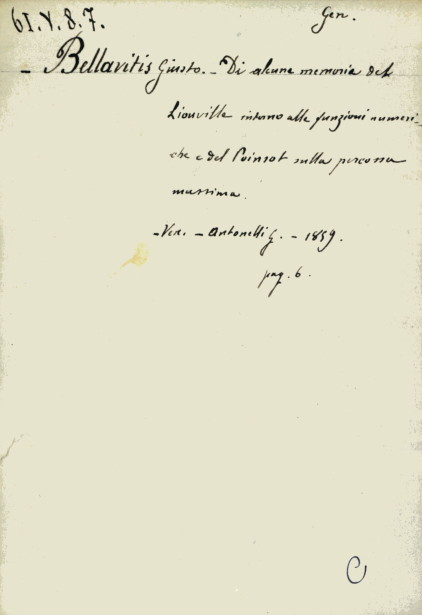 61.V.8.7.
Gen.
- Bellavitis Giusto. - Di alcune memorie del
Liouville intorno alle funzioni numeri-
che e del Poinsot sulla percossa
massima.
- Ven. - Antonelli G. - 1859.
pag. 6.
C